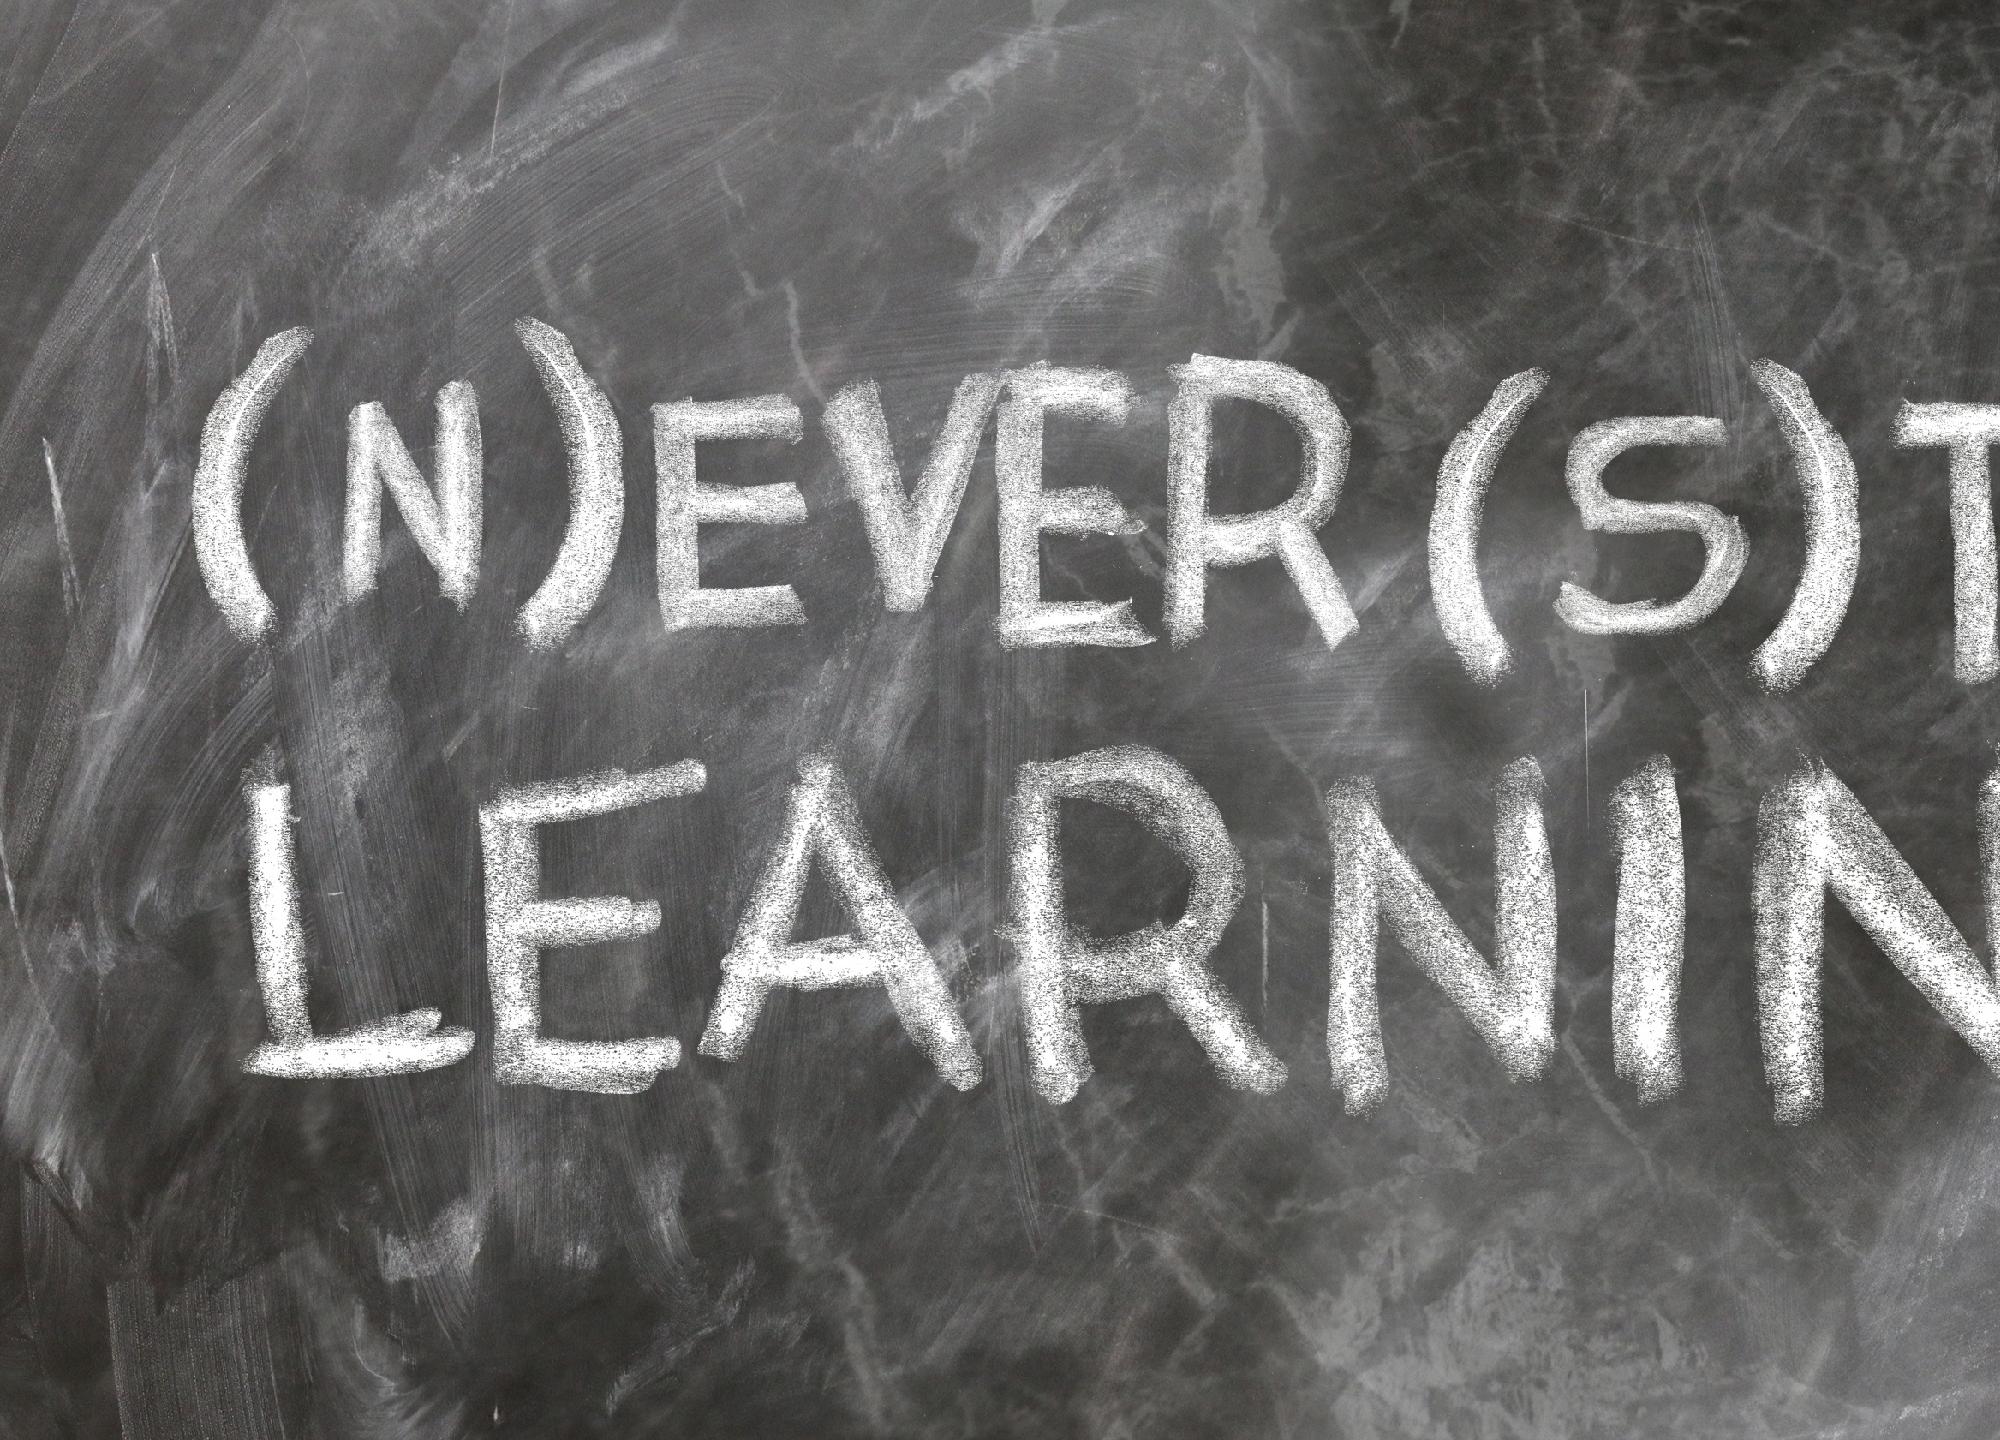 (N)EVER (S)T
LEARNIN